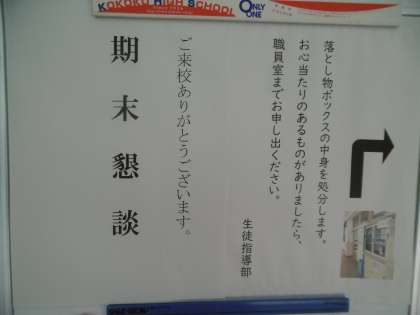 KOKOKU HIGH SCHOOL
ONLY ONE
落とし物ボックスの中身を処分します。
お心当たりのあるものがありましたら、
職員室までお申し出ください。
生徒指導部
ご来校ありがとうございます。
期末懇談